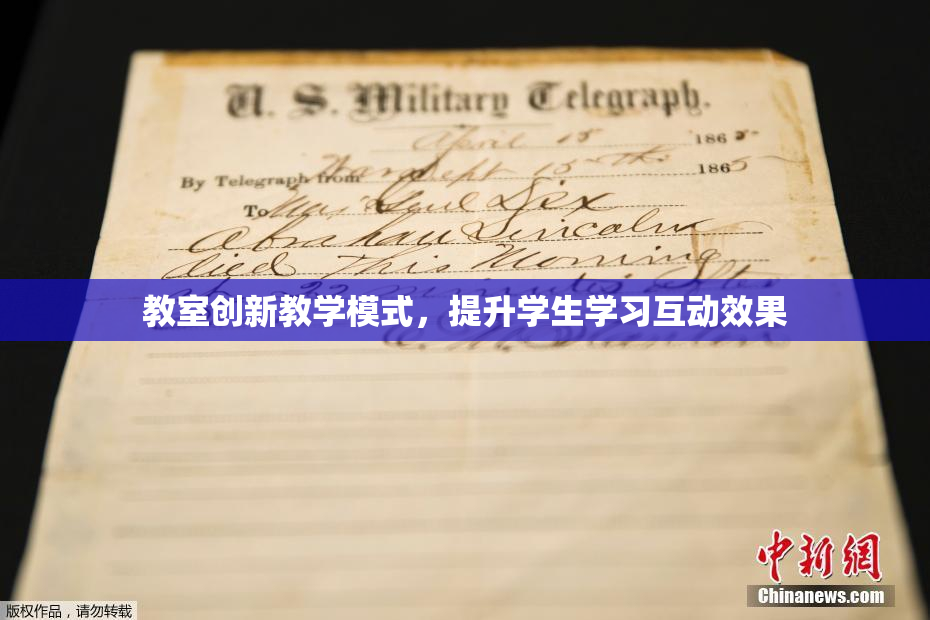 U. S. Military Telegraph.
April 15 1865
By Telegraph from War Dept 15th 1865
To Maj Genl Dix
Abraham Lincoln
died This Morning
22 minutes after
教室创新教学模式，提升学生学习互动效果
E. M. Stanton
中新網
Chinanews.com
版权作品，请勿转载